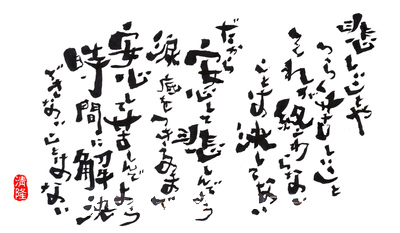 悲しいことや
つらく苦しいこと
それが終わらない
ことは決してない
だから
安心して悲しんでよう
涙底をつきるまで
安心して苦しんでよう
時間に解決
できないことはない
清隆